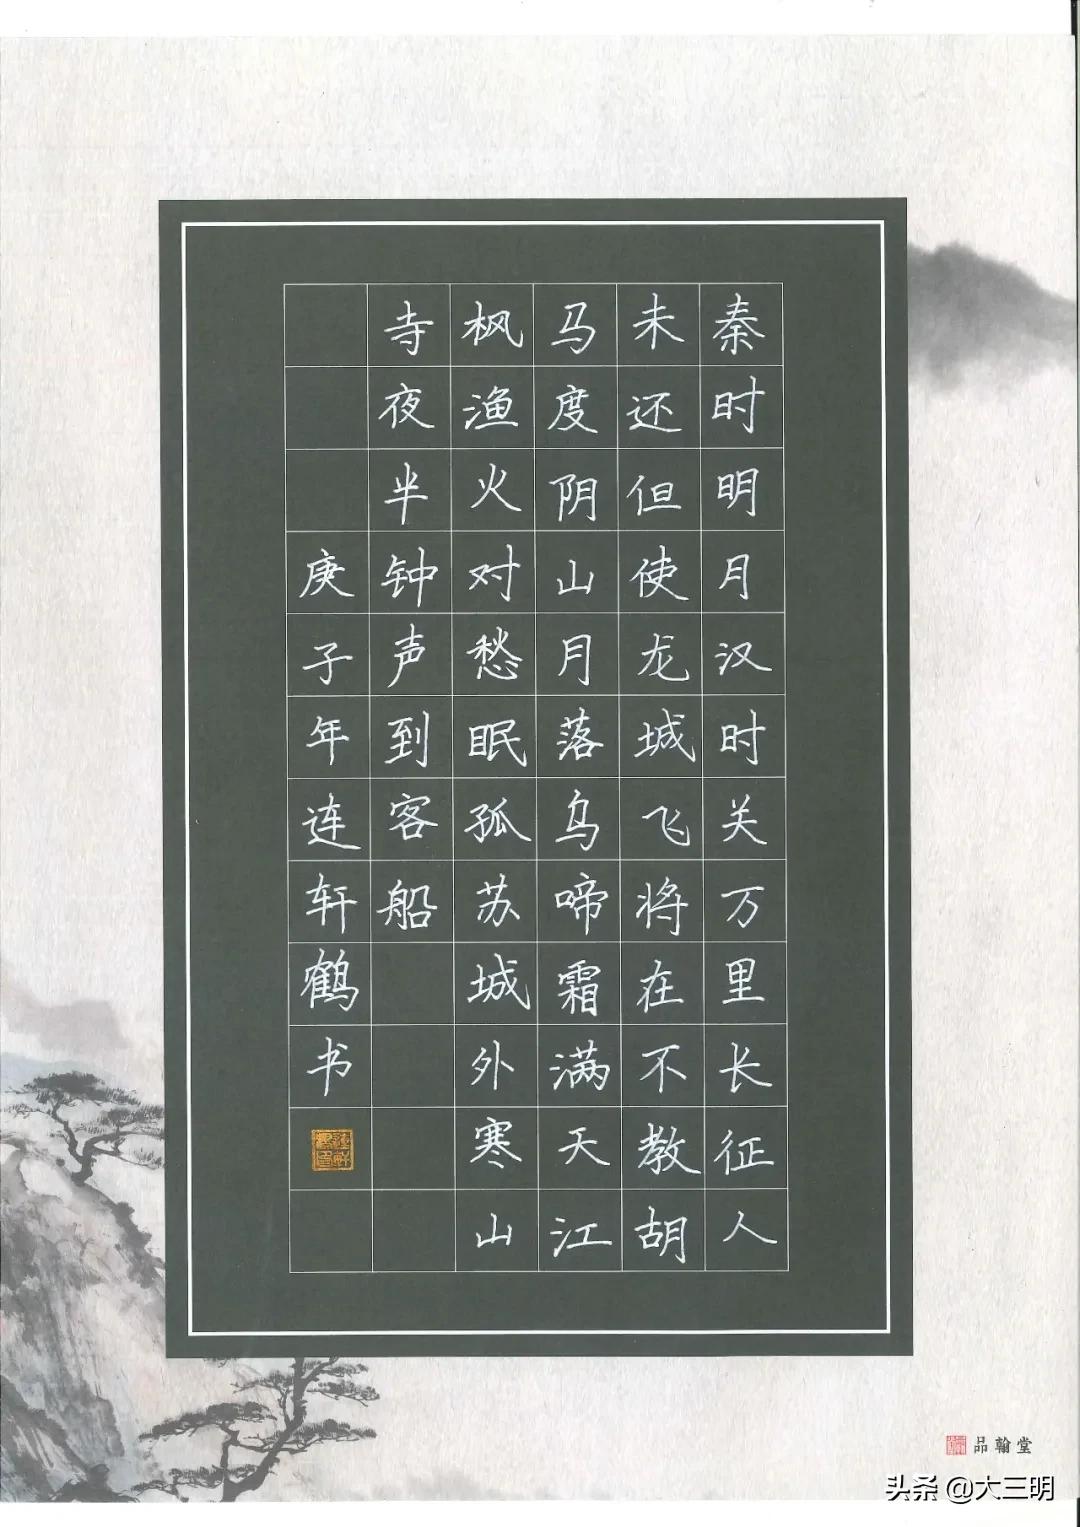 秦时明月汉时关万里长征人
未还但使龙城飞将在不教胡
马度阴山月落乌啼霜满天江
枫渔火对愁眠孤苏城外寒山
寺夜半钟声到客船
庚子年连轩鹤书
品翰堂
头条 @大三明